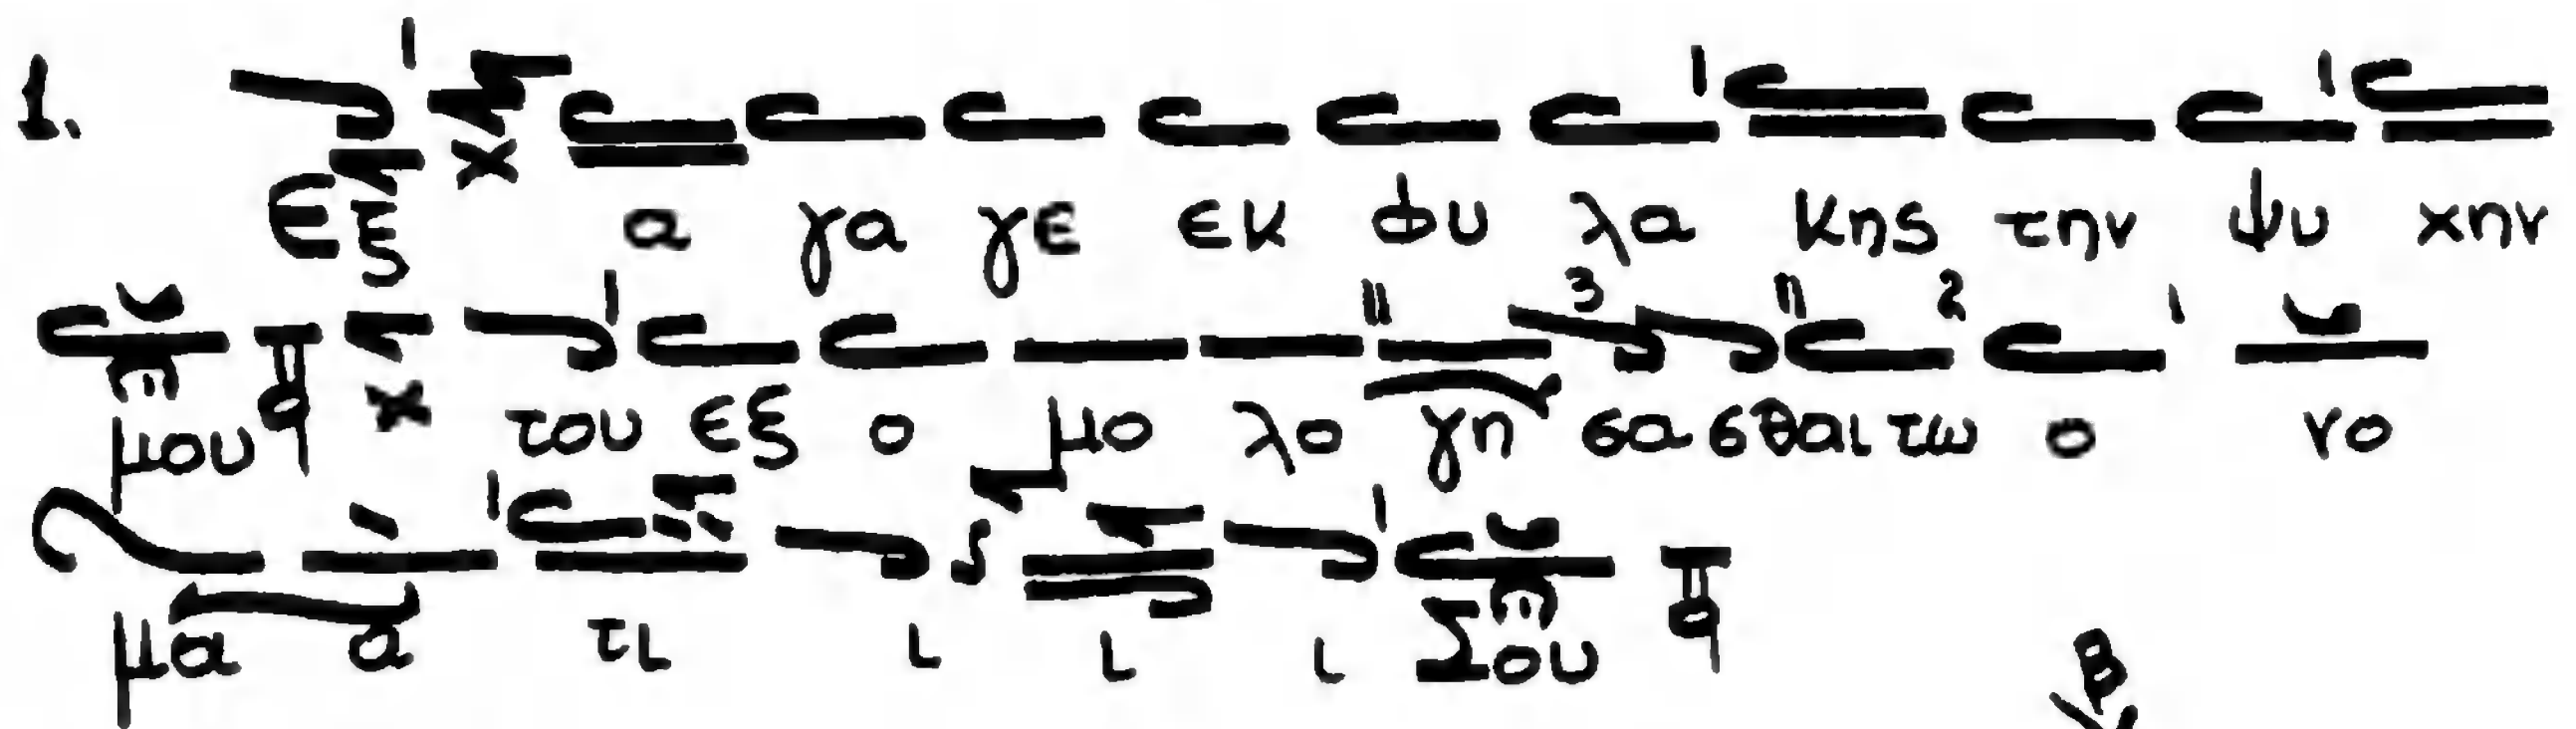 1. Εξ α γα γε εκ φυ λα κης την ψυ χην
μου του εξ ο μο λο γη σα σθαι τω ο νο
μα α τι ι ι ι Σου